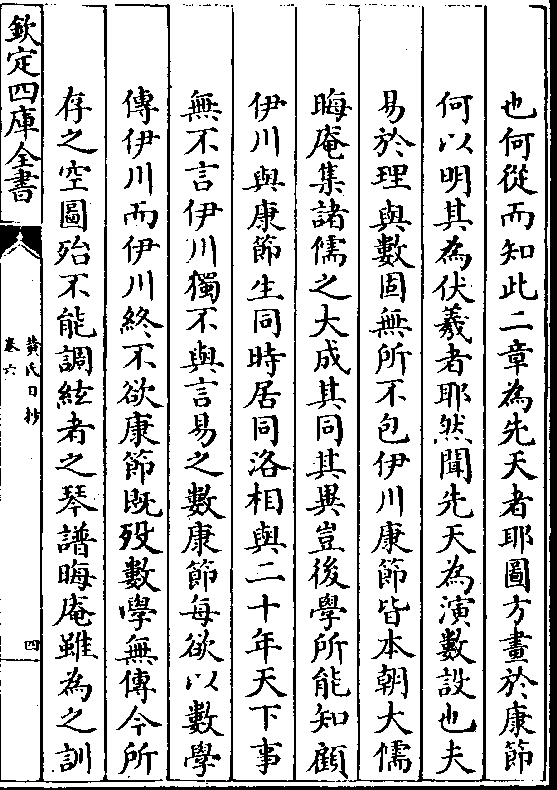 也何從而知此二章為先天者耶圖方畫於康節
何以明其為伏羲者耶然聞先天為演數設也夫
易於理與數固無所不包伊川康節皆本朝大儒
晦庵集諸儒之大成其同其異豈後學所能知顧
伊川與康節生同時居同洛相與二十年天下事
無不言伊川獨不與言易之數康節每欲以數學
傳伊川而伊川終不欲康節既殁數學無傳今所
存之空圖殆不能調絃者之琴譜晦庵雖為之訓
欽定四庫全書
黃氏日抄
卷六
四